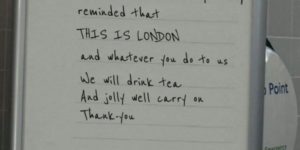 reminded that
THIS IS LONDON
and whatever you do to us
We will drink tea
And jolly well carry on
Thank-you
Point